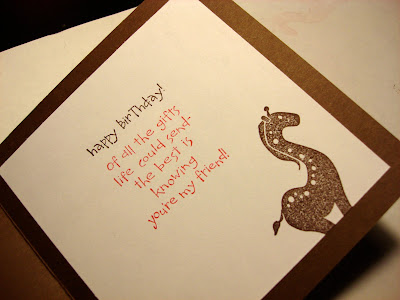 happy birThday!
of all the gifts
life could send-
the best is
knowing
you're my friend!